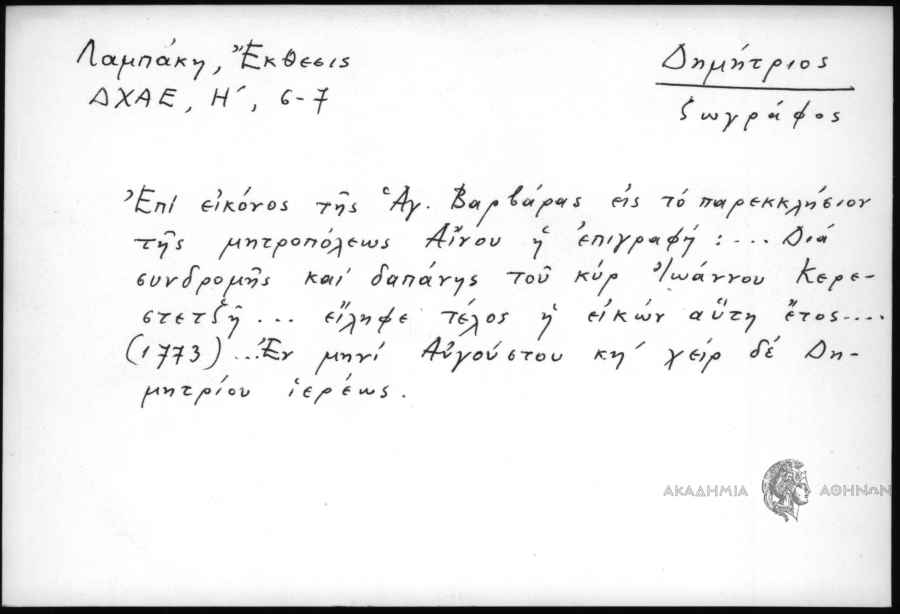 Λαμπάκη, Ἔκθεσις
ΔΧΑΕ, Η΄, 6-7
Δημήτριος
ζωγράφος
Ἐπί εἰκόνος τῆς Ἁγ. Βαρβάρας εἰς τό παρεκκλήσιον
τῆς μητροπόλεως Αἴνου ἡ ἐπιγραφή: ... Διά
συνδρομῆς καί δαπάνης τοῦ κύρ Ἰωάννου Κερε-
στετζῆ ... εἴληφε τέλος ἡ εἰκών αὕτη ἔτος....
(1773) ... Ἐν μηνί Αὐγούστου κη΄ χείρ δέ Δη-
μητρίου ἱερέως.
ΑΚΑΔΗΜΙΑ ΑΘΗΝΩΝ